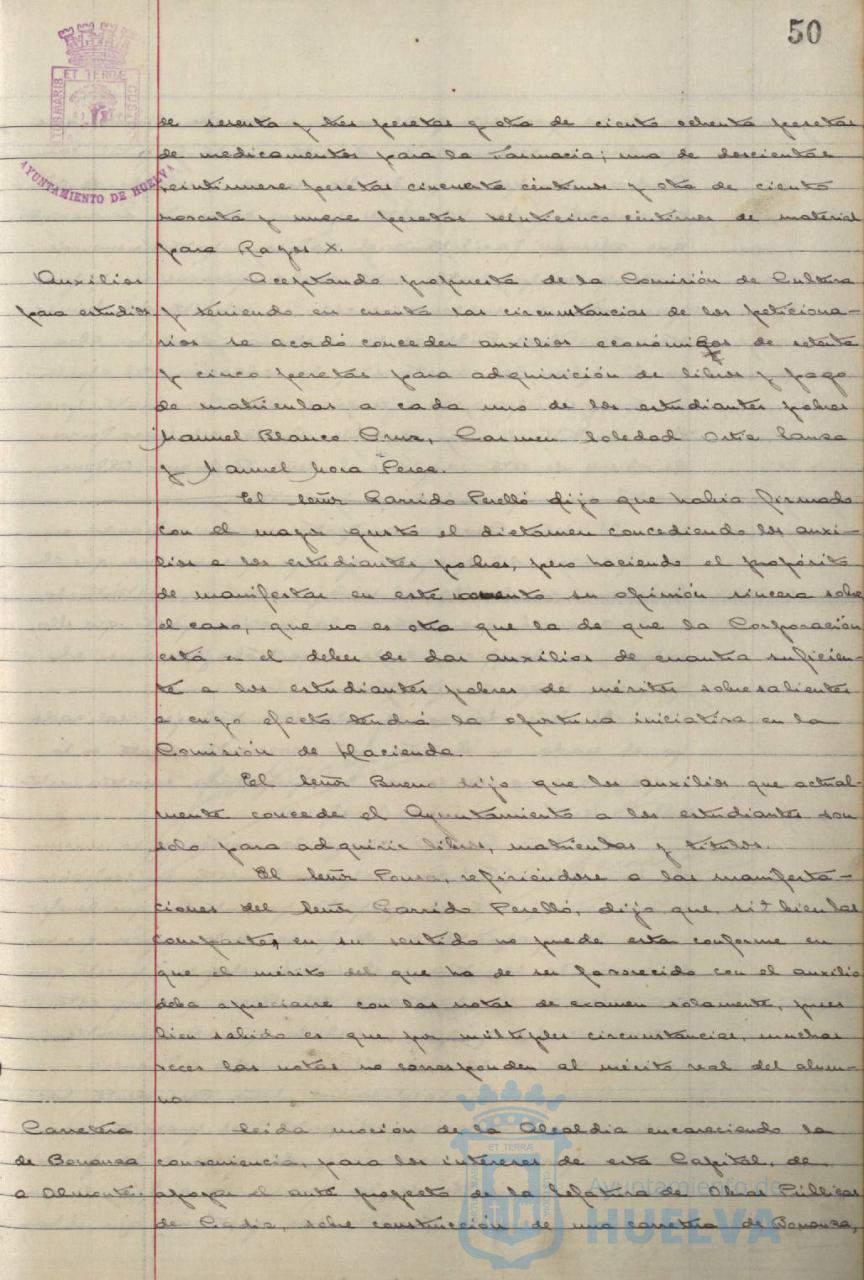 50
ET TERRÆ
AYUNTAMIENTO DE HUELVA
de sesenta y tres pesetas y otra de ciento ochenta pesetas
de medicamentos para la Farmacia; una de doscientas
veintinueve pesetas cincuenta céntimos y otra de ciento
noventa y nueve pesetas veinticinco céntimos de material
para Rayos X.
Auxilios
para estudios
Aceptando propuesta de la Comisión de Cultura
y teniendo en cuenta las circunstancias de los peticiona-
rios se acordó conceder auxilios económicos de setenta
y cinco pesetas para adquisición de libros y pago
de matrículas a cada uno de los estudiantes pobres
Manuel Blanco Cruz, Carmen Soledad Ortiz
y Manuel Mora Perea.
El Señor Garrido Perelló dijo que había firmado
con el mayor gusto el dictamen concediendo los auxi-
lios a los estudiantes pobres, pero haciendo el propósito
de manifestar en este momento su opinión sincera sobre
el caso, que no es otra que la de que la Corporación
está en el deber de dar auxilios de cuantía suficien-
te a los estudiantes pobres de méritos sobresalientes
a cuyo efecto tendrá la oportuna iniciativa en la
Comisión de Hacienda.
El Señor Bueno dijo que los auxilios que actual-
mente concede el Ayuntamiento a los estudiantes son
solo para adquirir libros, matrículas y títulos.
El Señor Ponsa, refiriéndose a las manifesta-
ciones del Señor Garrido Perelló, dijo que, si bien las
comparte, en su sentido no puede estar conforme en
que el mérito del que ha de ser favorecido con el auxilio
deba apreciarse con las notas de examen solamente, pues
bien sabido es que por múltiples circunstancias, muchas
veces las notas no corresponden al mérito real del alum-
no.
Carretera
de Bonanza
a Almonte.
Leída moción de la Alcaldía encareciendo la
conveniencia, para los intereses de esta Capital, de
apoyar el ante proyecto de la Jefatura de Obras Públicas
de Cádiz, sobre construcción de una carretera de Bonanza,
ET TERRÆ
Ayuntamiento de
HUELVA